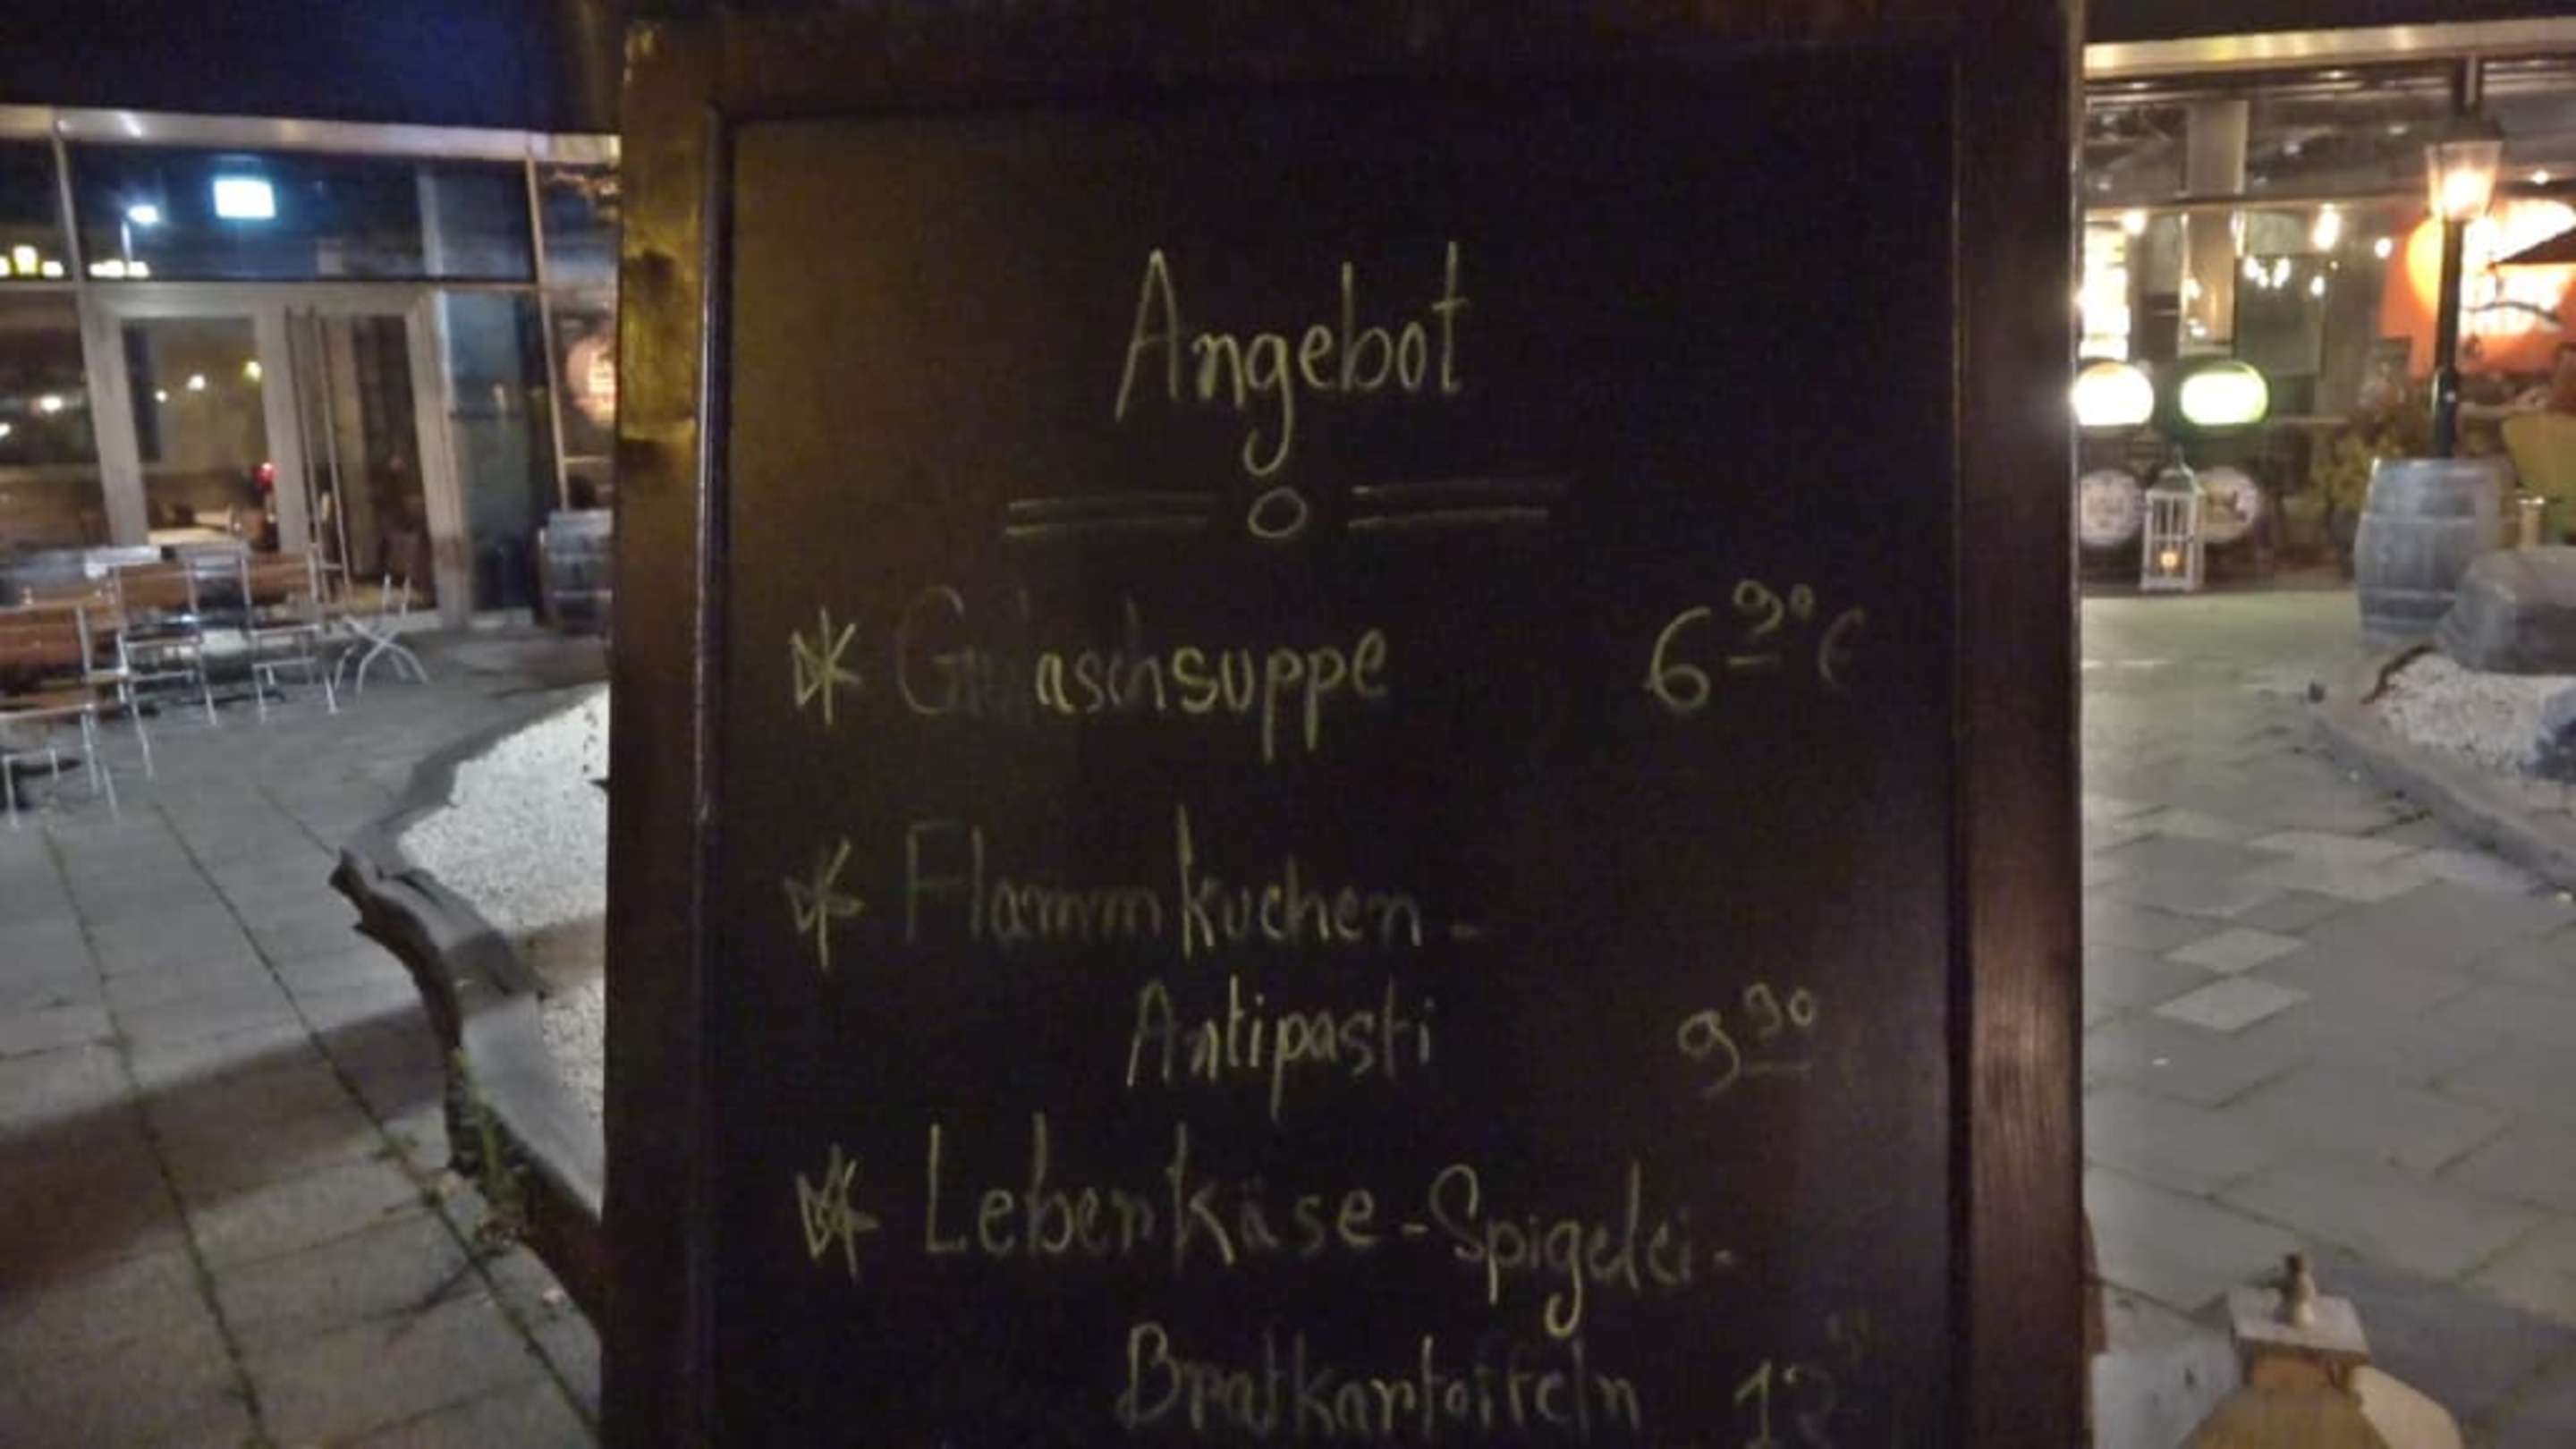 Angebot
* Gulaschsuppe 6 90 €
* Flammkuchen -
Antipasti 9 90
* Leberkäse - Spigelei -
Bratkartoffeln 12